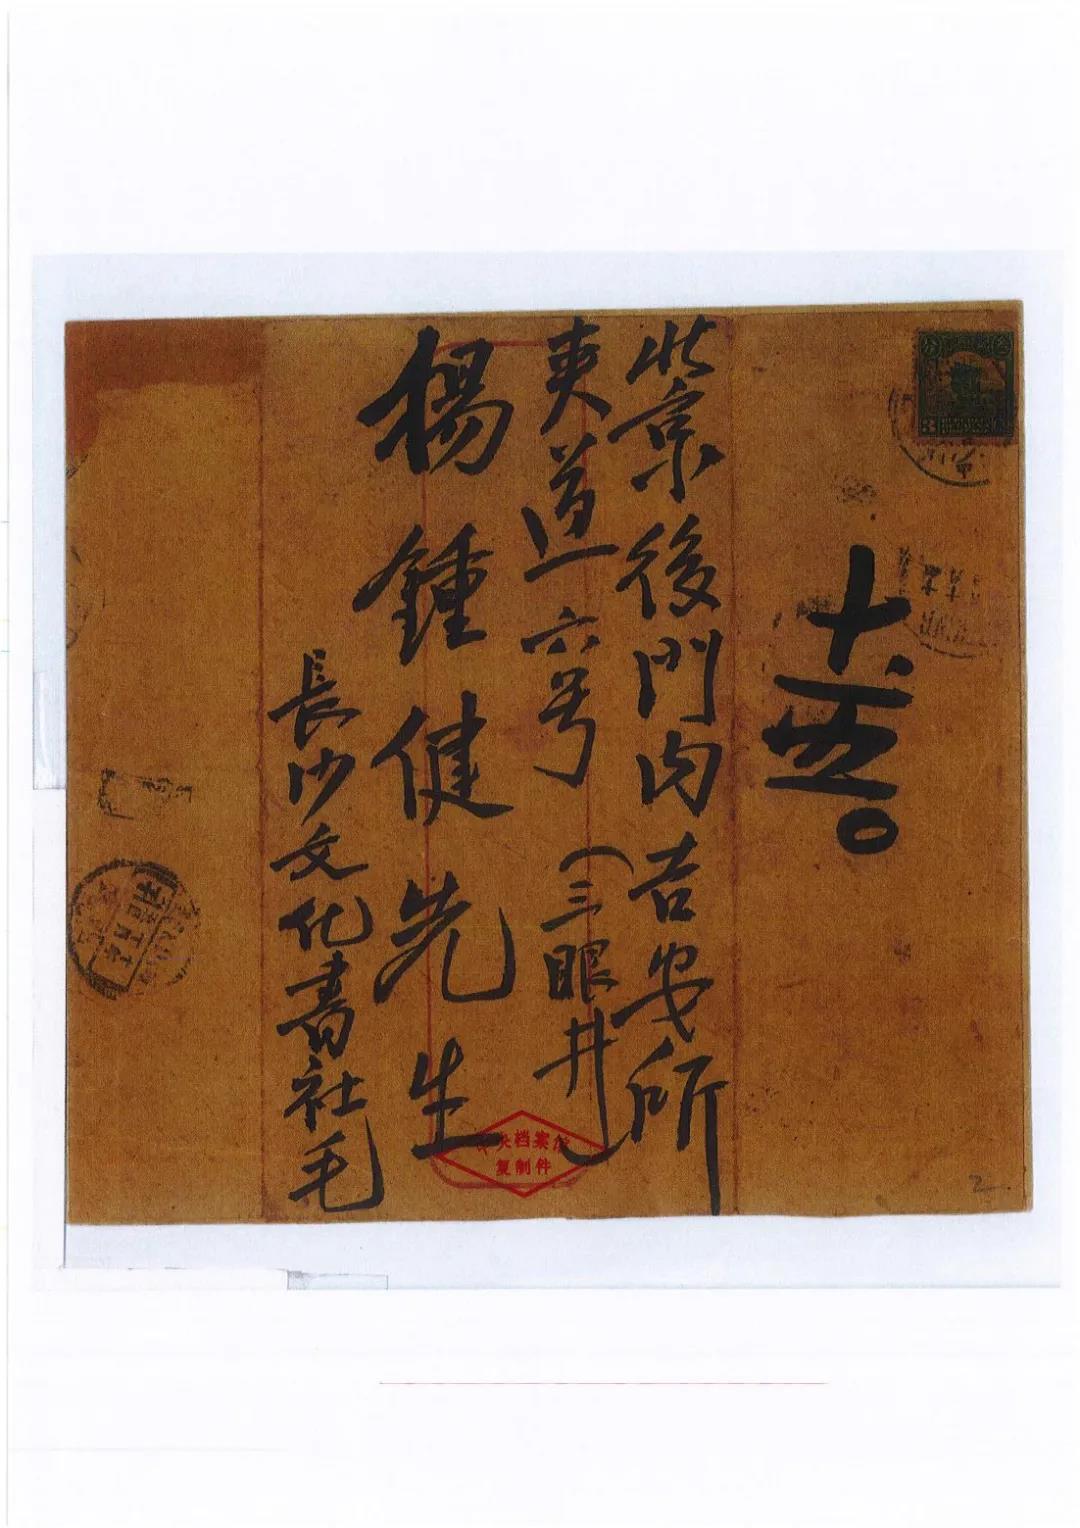 十、一四。
北京後門内吉安所
夾道六号（三眼井）
楊鍾健先生
長沙文化書社毛
中央档案馆
复制件
3
2